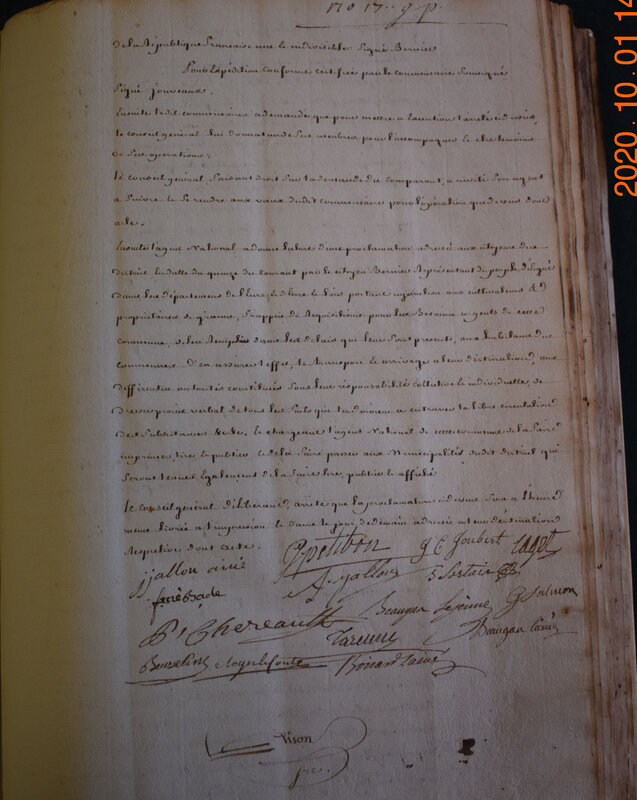 de la République française une et indivisible. Signé Bernier
Pour Expédition conforme certifiée par le commissaire soussigné
signé jouveaux.
Ensuite ledit commissaire a demandé que pour mettre a Execution l'arrêté cidessus,
le conseil général lui donnat un de ses membres pour l'accompagner et etre temoin
de ses operations;
Le conseil general, faisant droit sur la demande du comparant, a invité son agent
a suivre et se rendre aux vœux dudit commissaire pour l'opération que dessus dont
acte.
Ensuite l'agent National a donné lecture d'une proclamation adressée aux citoyens de ce
district en datte du quinze du courant par le citoyen Bernier Représentant du peuple, délégué
dans les départemens de l'Eure et d'Eure et Loir portant injonction aux cultivateurs &
propriétaires de grains, frappés de Réquisitions pour les Besoins urgents de cette
commune, de les Remplir dans les délais qui leur sont prescrits, aux habitans du
commune d'en assurer l'effet, le transport et arrivage a leur destination, aux
différentes autorités constituées sous leur résponsabilité collective et individuelle, de
dresser procès verbal de tous les faits qui tendroient a entraver la libre circulation
des subsistances &c &c. Et chargeant l'agent National de cette commune de la faire
imprimer, lire et publier et de la faire passer aux Municipalités dudit district qui
seront tenues Egalement de la faire lire, publier et afficher
Le conseil général délibérant, arrête que la proclamation cidessus sera a l'heure
même livrée a l'impression et dans le jour de demain adressée a leur destination
Respective dont acte.
jjallon ainé
G petibon
g E Joubert
Cagot
A. jallon
S Sortier
P. Chereault
Beaugar lejeune
G Salmon
Tarenne
Beaugar lainé
Bouzelin
Royer le conte
Boisard lainé
Vison
2020.10.01 14